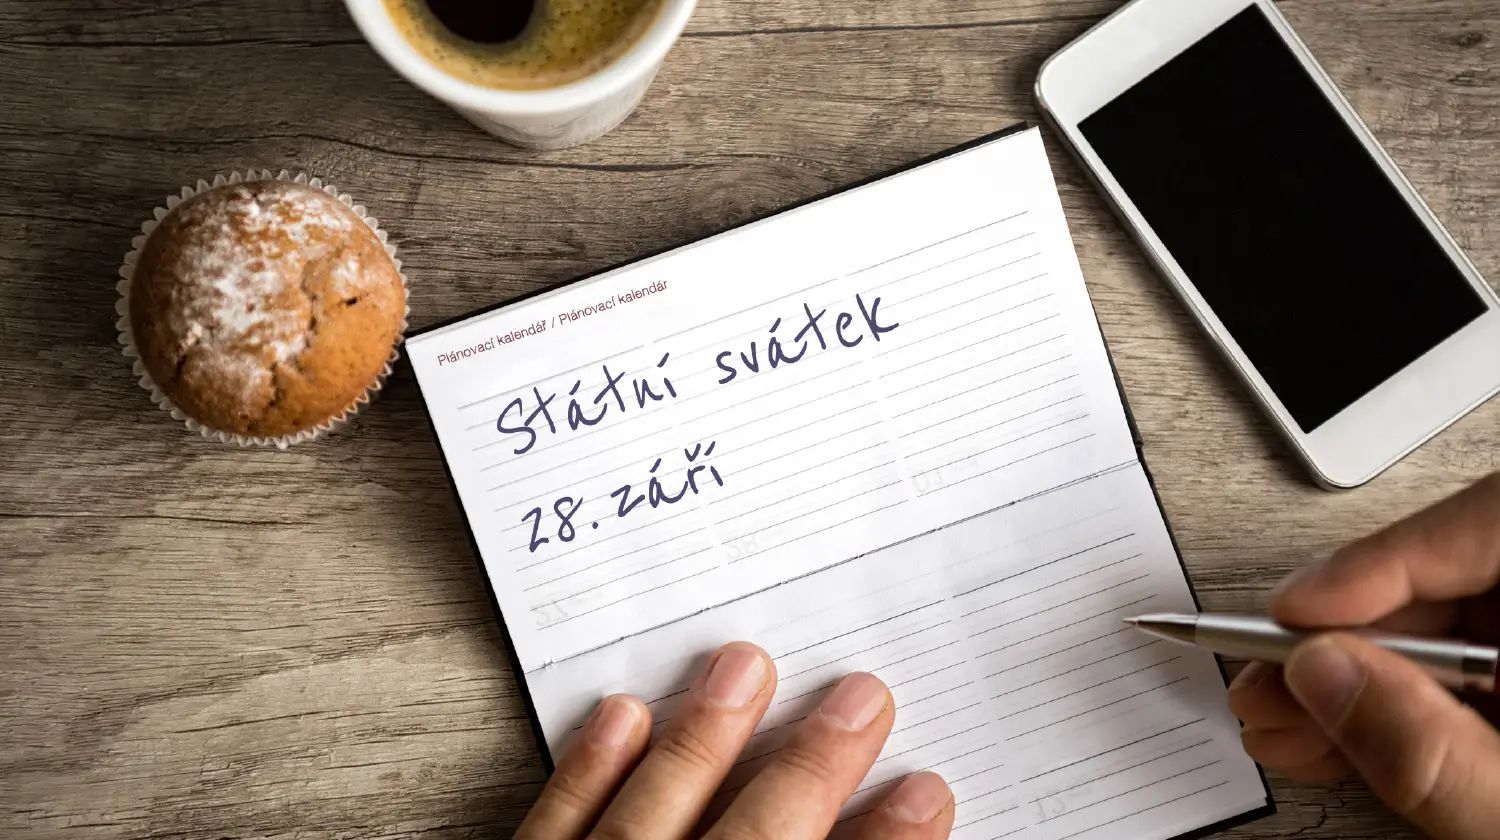 Plánovací kalendář / Plánovací kalendár
Státní svátek
28. září